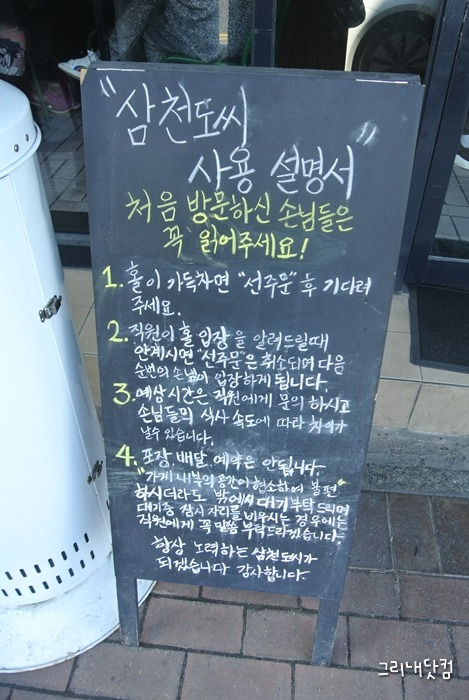 "삼천도씨
사용 설명서"
처음 방문하신 손님들은
꼭 읽어주세요!
1. 홀이 가득차면 "선주문" 후 기다려
주세요.
2. 직원이 홀 입장을 알려드릴때
안계시면 "선주문"은 취소되며 다음
순번의 손님이 입장하게 됩니다.
3. 예상시간은 직원에게 문의 하시고
손님들의 식사 속도에 따라 차이가
날수 있습니다.
4. 포장, 배달, 예약은 안됩니다.
"가게 내부의 공간이 협소하여 불편"
하시더라도 밖에서 대기부탁드리며
대기중 잠시 자리를 비우시는 경우에는
직원에게 꼭 말씀 부탁드리겠습니다.
항상 노력하는 삼천도씨가
되겠습니다 감사합니다.
그리내닷컴